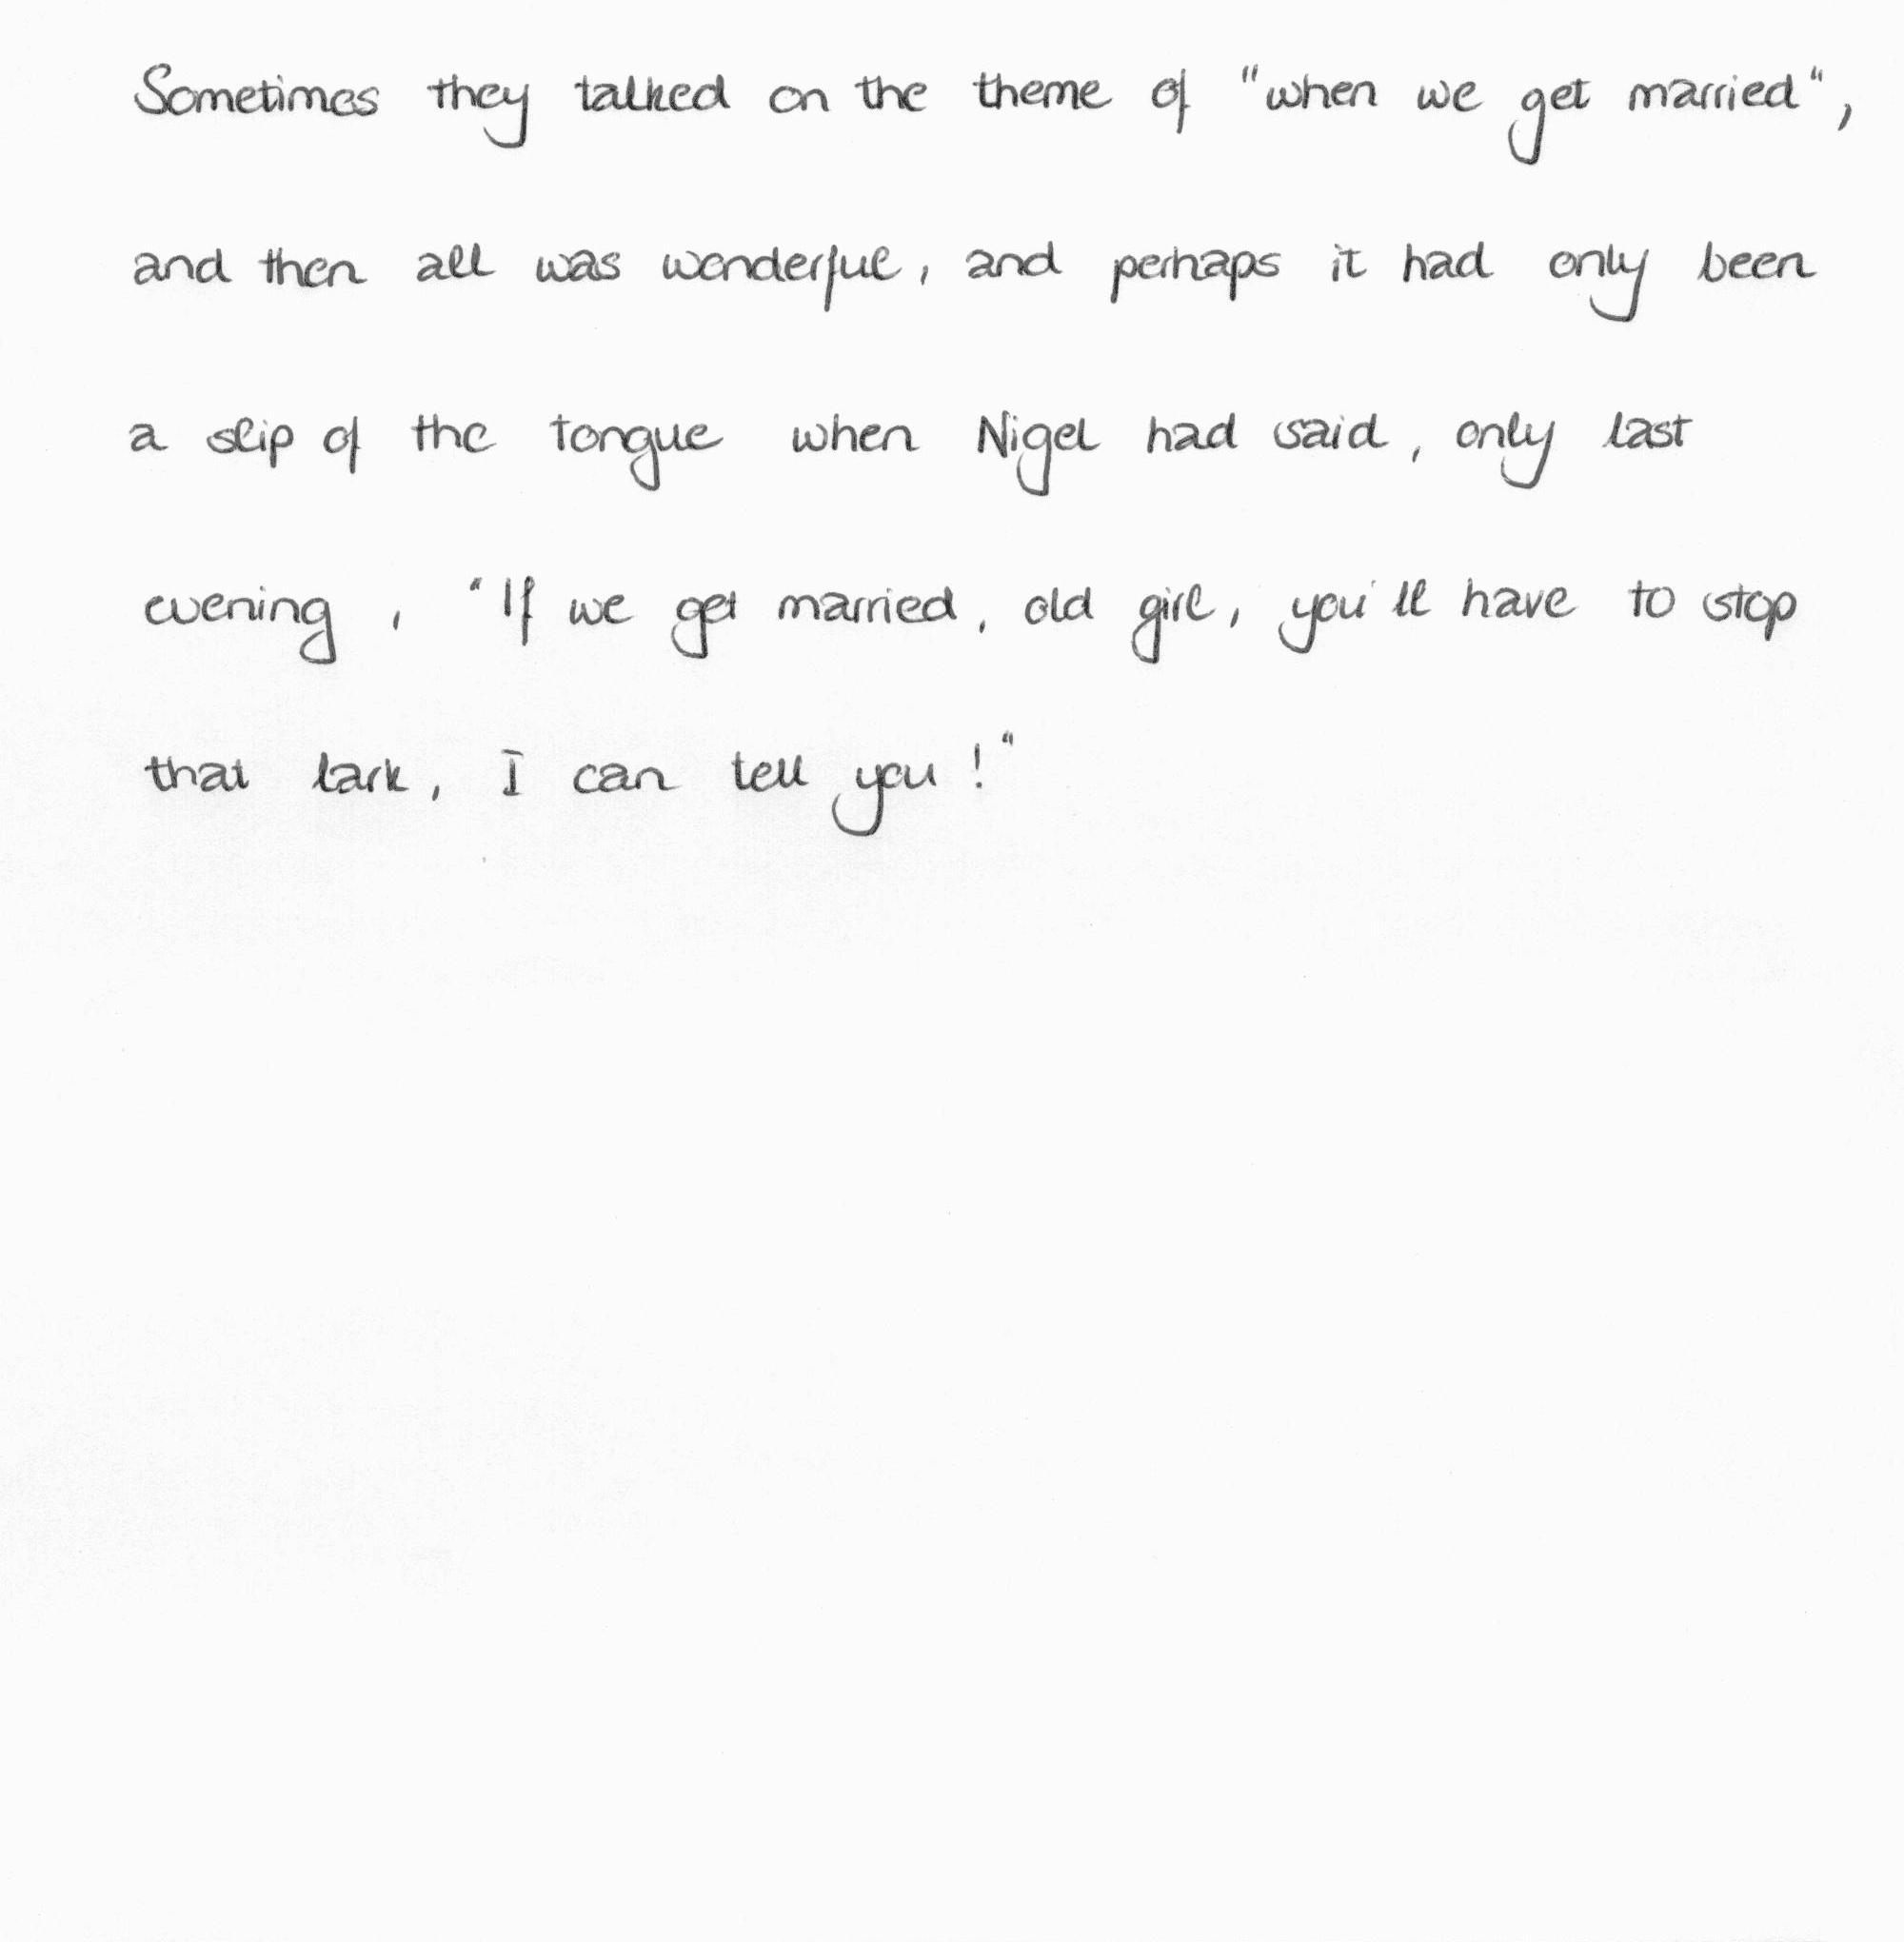 Sometimes they talked on the theme of "when we get married",
and then all was wonderful, and perhaps it had only been
a slip of the tongue when Nigel had said, only last
evening, "If we get married, old girl, you'll have to stop
that lark, I can tell you!"